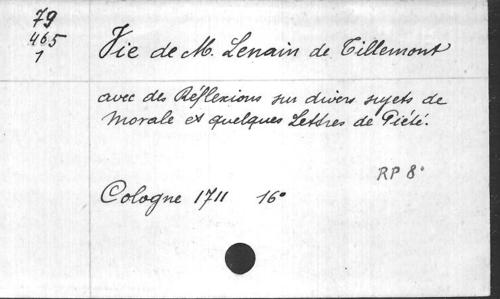 79
465
1
Vie de M. Lenain de Tillemont
avec des Réflexions sur divers sujets de
Morale et quelques Lettres de Piété.
RP 8°
Cologne 1711 16°